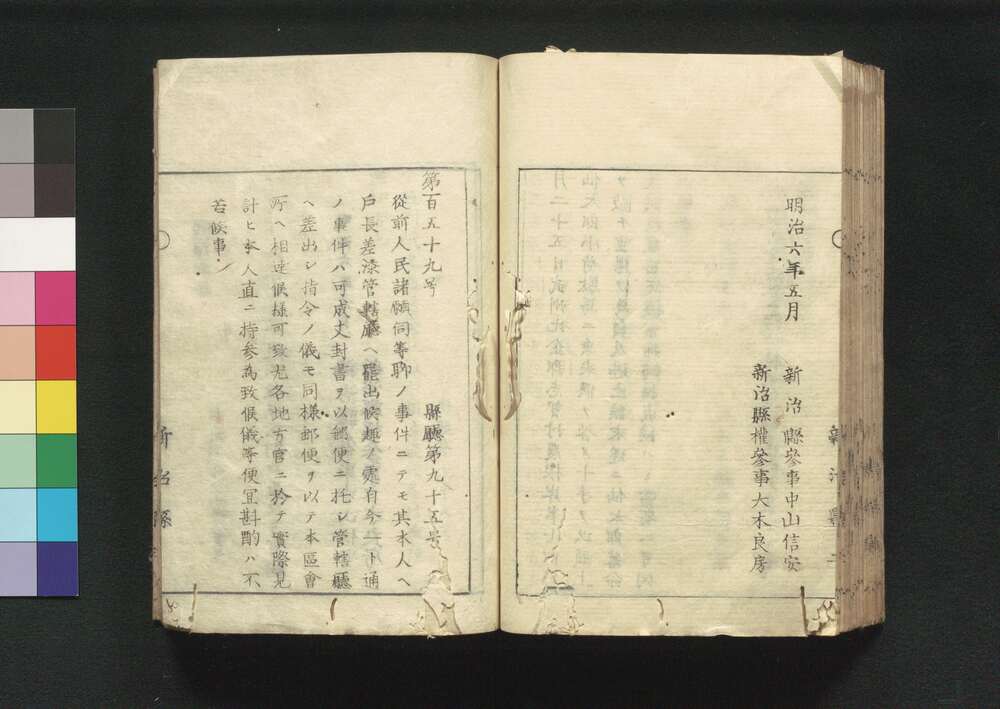 明治六年五月
新治縣參事中山信安
新治縣權參事大木良房
第百五十九号
縣廳第九十五号
從前人民諸願伺等聊ノ事件ニテモ其本人ヘ
戸長差添管轄廳ヘ罷出候趣ノ處自今一ト通
ノ事件ハ可成丈封書ヲ以郵便ニ托シ管轄廳
ヘ差出シ指令ノ儀モ同様郵便ヲ以テ本區會
所ヘ相達候様可致尤各地方官ニ於テ實際見
計ヒ本人直ニ持参為致候儀等便宜斟酌ハ不
苦候事
新治縣